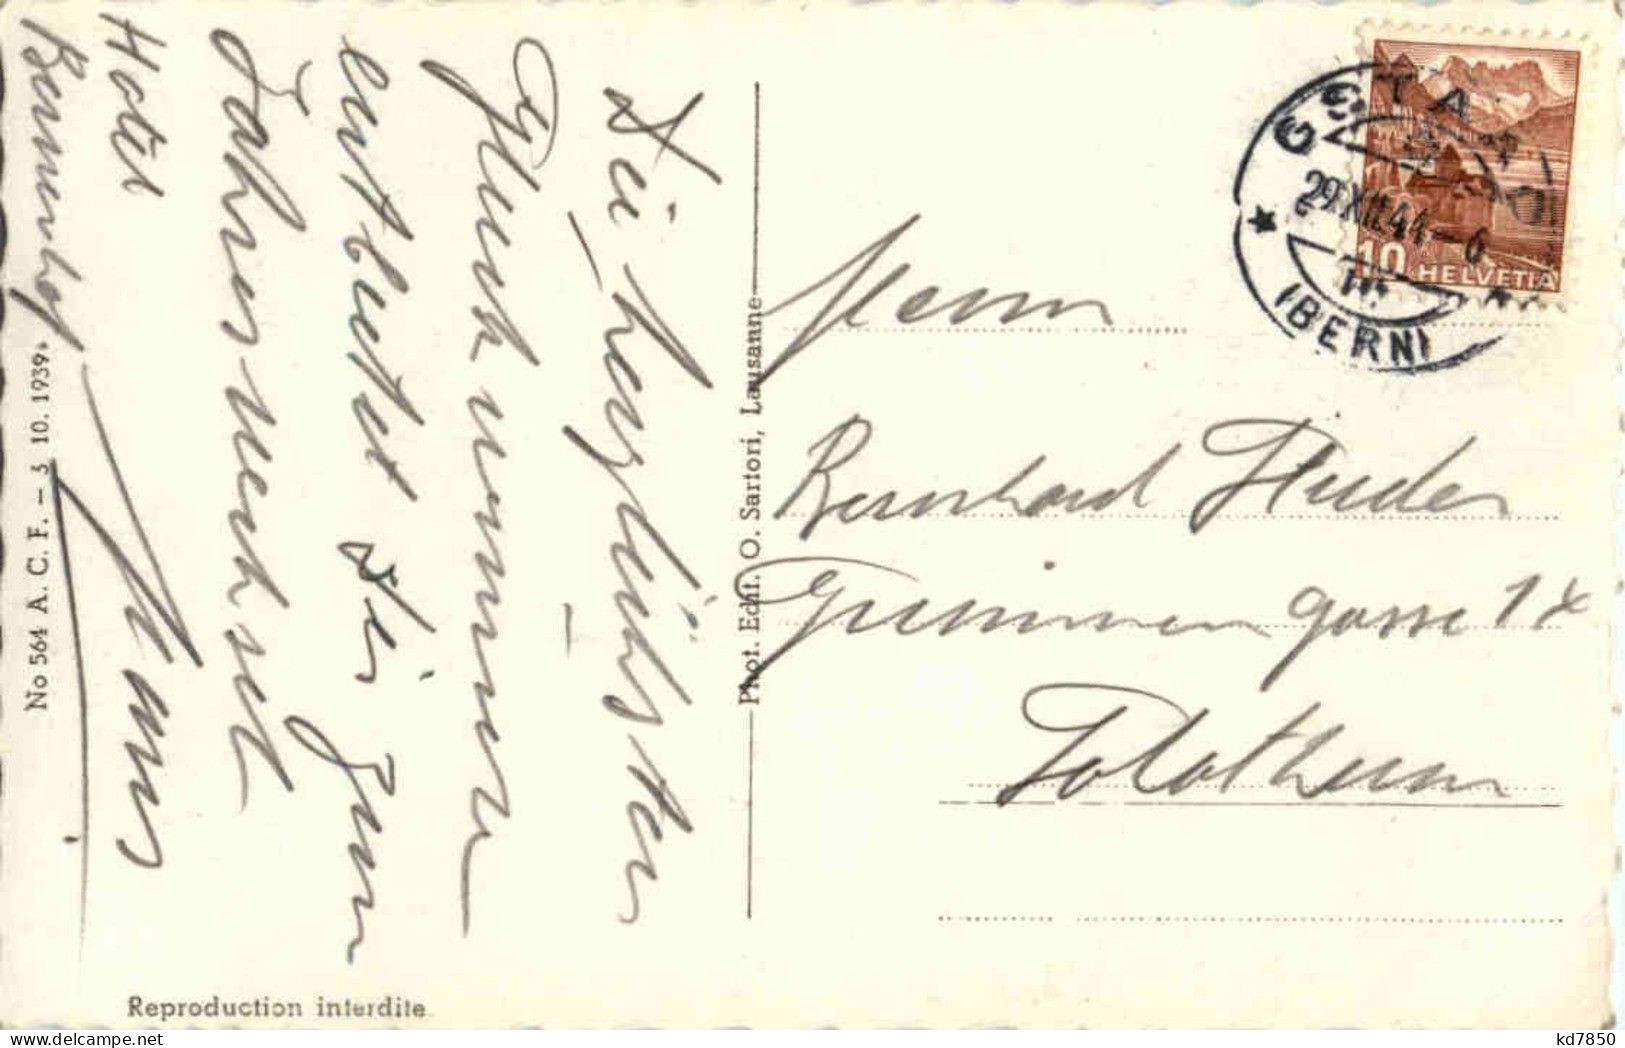 Die herzlichsten
Glückwünsche
entbietet Dir zum
Jahreswechsel
Hans
Hotel
Bernerhof
No 564 A. C. F. – 3 10. 1939
Reproduction interdite
Phot. Edit. O. Sartori, Lausanne
Herrn
Bernhard Studer
gasse 17
Solothurn
GSTAAD
29.XII.44–6
(BERN)
10 HELVETIA
kd7850